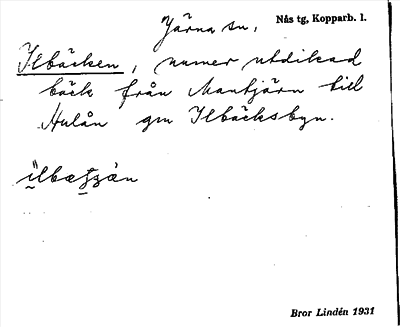 Järna sn. Nås tg, Kopparb. l.
Ilbäcken, numer utdikad
bäck från Mantjärn till
Hulån gm Ilbäcksbyn.
Bror Lindén 1931